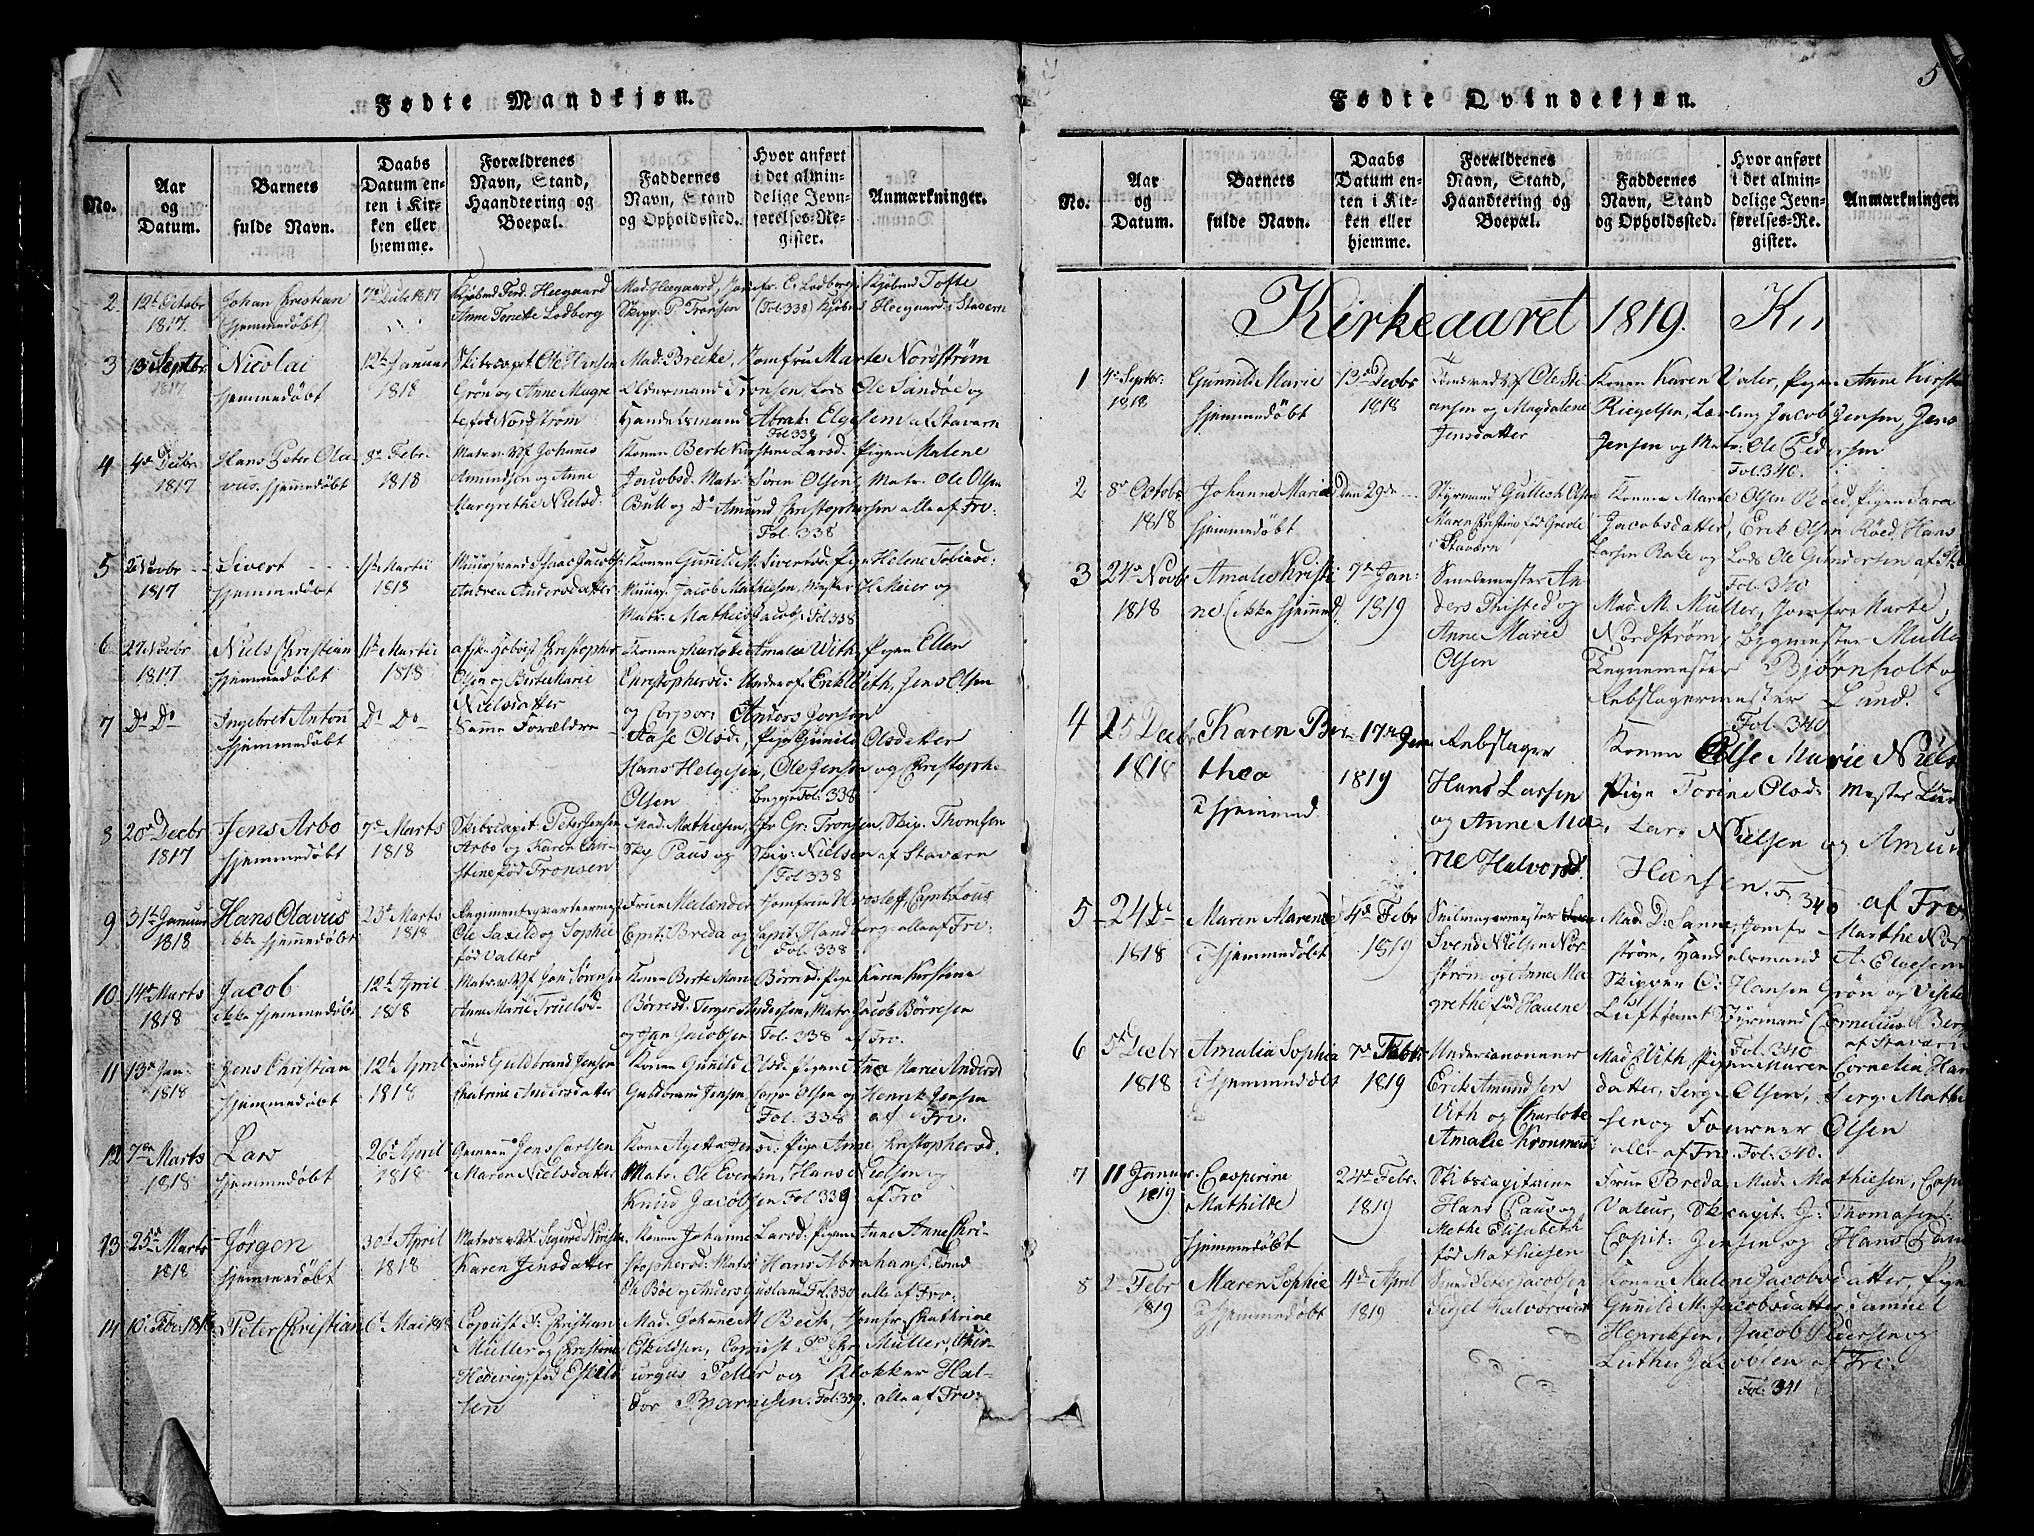 5
Fødte Mandkjøn.
No.
Aar og Datum.
Barnets fulde Navn.
Daabs Datum enten i Kirken eller hjemme.
Forældrenes Navn, Stand, Haandtering og Boepæl.
Faddernes Navn, Stand og Opholdsted.
Hvor anført i det almindelige Jevnførelses-Register.
Anmærkninger.
2 12t Octobr 1817. Johan Christian (hjemmedøbt)
Kjøbmd Ferd. Heegaard
Anne Lodberg
Mad. Heegaard, C. Lodberg, Kjøbmd Tofte
Skipp. P. Tronsen (Fol 338) Heegaard i Staværn
3 13 Septbr 1817 Nicolai hjemmedøbt
12te Januar 1818
Skibscapt. Ole Hansen
Grøn og Anne Magrete
fød Nordstrøm
Mad. Brecke, Jomfru Marte Nordstrøm
Oldermand Tronsen, Lods Ole Sandøe og
Handelsmand Abrah: Elgesem af Staværn
Fol 338
4 4de Decbr 1817 Hans Peter Olavus hjemmedøbt
8de Febr. 1818
Johannes
Amundsen og Anne
Margrethe Nielsd.
Konen Berte Kirstine Larsd. Pigen Malene
Jacobsd. Matr. Søren Olsen, Matr. Ole Olsen
Bull og Do Amund Christophersen alle af Frv:
Fol. 338
5 Novbr 1817 Sivert hjemmedøbt
11te Martii 1818
Isaac Jacobs:
Andrea Andersdatter
Konen Gunild Sivertsd. Pigen Helene Tobiasd:
Jacob Mathiesen, H. Meier og
Matr. Mathias Jacobs: Fol 338
6 27 Novbr 1817 Niels Christian hjemmedøbt
11te Martii 1818
Christopher
Olsen og Berte Marie
Nielsdatter
Konen Charlotte Amalia With, Pigen Ellen
Christophersd: Underof. Erik With, Jens Olsen
og Corpor: Anders Jonsen
7 Do Do Ingebret Anton hjemmedøbt
Do Do
Samme Forældre
Aase Olsd., Pige Gunild Olsdatter
Hans Helgesen, Ole Jensen og Christoph.
Olsen Fol. 338
8 20de Decbr 1817 Jens Arbo hjemmedøbt
7de Marts 1818
Skibscapit. Peter Jensen
Arbo og Karen Chirstine
fød Tronsen
Mad. Mathiesen, Jfr Gr: Tronsen, Skip. Thomsen
Skp Paus og Skip: Nielsen af Staværn
Fol 338
9 31te Januar 1818 Hans Olavus ikke hjemmedøbt
23de Marts 1818
Regimentsqvarteermest.
Ole Saxild og Sophie
fød Valter
Frue Malander Jomfrue Capt. Lous
Capt: Breda og Capit: Handberg alle af Frv:
Fol. 338
10 14de Marts 1818 Jacob ikke hjemmedøbt
12te April 1818
Jan Sørensen
Anne Marie Truelsd.
Konen Berte Marie Børresd. Pigen Karen Kirstine
Børresd: Torger Andersen, Matr. Jacob Børresen
og Jan Jacobsen Fol. 338 af Frv.
11 13de Jan: 1818 Jens Christian hjemmedøbt
12te April 1818
Guldbrand Jensen
Chatrine Andersdatter
Konen Gunild Olsd. Pigen Ane Marie Andersd
Guldbrand Jensen Corpr. Olsen og Henrik Jensen
Fol. 338 af Frv.
12 7de Marts 1818 Lars hjemmedøbt
26de April 1818
Jens Carlsen
Maren Nielsdatter
Kone Agetta Pige Anne Christophersd.
Matr: Ole Evensen, Hans Nielsen og
Knud Jacobsen Fol 339 af Frv
13 25de Marts 1818 Jørgen hjemmedøbt
30te April 1818
Karen Jensdatter
Konen Johanne Larsd: Pigen Anne Anne Christophersd:
Matr: Hans Abrahams:
Ole Bøe og Anders Fol 339 alle af Frv:
14 10de Febr. 1818 Peter Christian
6te Mai 1818
Copiist Sr. Christian
Müller og Christine
Hedevig fød Eskildsen
Mad. Johanne M Bech, Jomfr. Chathrine
Eskildsen, Copiist P. Chr. Müller, Chirurgus
Teller og Klokker Haldor
Bjarnesen. Fol: 339. alle af Frv:
Fødte Qvindekjøn.
No.
Aar og Datum.
Barnets fulde Navn.
Daabs Datum enten i Kirken eller hjemme.
Forældrenes Navn, Stand, Haandtering og Boepæl.
Faddernes Navn, Stand og Opholdsted.
Hvor anført i det almindelige Jevnførelses-Register.
Anmærkninger.
Kirkeaaret 1819.
1 4de Septbr. 1818 Gunnild Marie hjemmedøbt
13de Decbr 1818
og Magdalene
Jensdatter
Konen Karen Valer, Pigen Anne Kirst
Riegelsen, Lærling Jacob Jensen, Jens
Jensen og Matr: Ole Pedersen
Fol. 340.
2 8de Octobr 1818 Johanne Marie hjemmedøbt
Den 29de
Styrmand Gullich Olsen
Maren Kristine fød
i Staværn
Konen Marte Olsen Røed, Pigen Sara
Jacobsdatter, Erik Olsen Røed, Hans
Larsen Rake og Lods Ole Gundersen
Fol. 340
3 24de Novbr 1818 Amalie Kristine (ikke hjemmed.)
7de Jan: 1819
Smedemester Anders
Thisted og
Anne Marie
Olsen
Mad. M. Müller, Jomfru Marte
Nordstrøm, Bygmester Müller
Tegnemester Bjørnholt og
Rebslagermester Lund.
Fol. 340
4 25 Decbr 1818 Karen Berthea hjemmed
17de Jan. 1819
Rebslager
Hans Larsen
og Anne Marie
Halvorsd.
Konen Else Marie Niels
Pige Torine Olsd. Mester Lund
Lars Nielsen og Amun
Hansen. F. 340 af Frv.
5 24 De 1818 Maren Marende hjemmedøbt
4de Febr 1819
Seilmagermester
Svend Nielsen Norstrøm
og Anne Magrethe
fød Hauene
Mad. D: Sanne, Jomfr Marthe Nor
strøm, Handelsmand A. Elgesem
Skipper C: Hansen Grøn og
Styrmand Cornelius Berg
af Staværn
Fol. 340
6 5te Decbr 1818 Amalia Sophia hjemmedøbt
7de Febr. 1819
Undercanoneer
Erik Amundsen
With og Charlotte
Amalie
Mad With, Pigen Maren Cornelia Han
datter, Serg: Olsen, Serg: Mathi
sen og Fourneer Olsen
alle af Frv. Fol: 340.
7 11 Januar 1819 Casperine Mathilde hjemmedøbt
24de Febr. 1819
Skibscapitainen
Hans Paus og
Methe Elisabeth
fød Mathiesen
Frue Breda, Mad. Mathiesen, Capt
Valeur, Skcapit. J: Thomasen:
Capit: Jensen og Hans Pau
8 2 Febr 1819 Maren Sophie hjemmedøbt
4de April 1819
Iver Jacobsen
Sigel Halvorsd
Konen Malene Jacobsdatter, Pigen
Gunild M. Jacobsdatter, Samuel
Henriksen, Jacob Pedersen og
Luthe Jacobsen af Frv:
Fol: 341